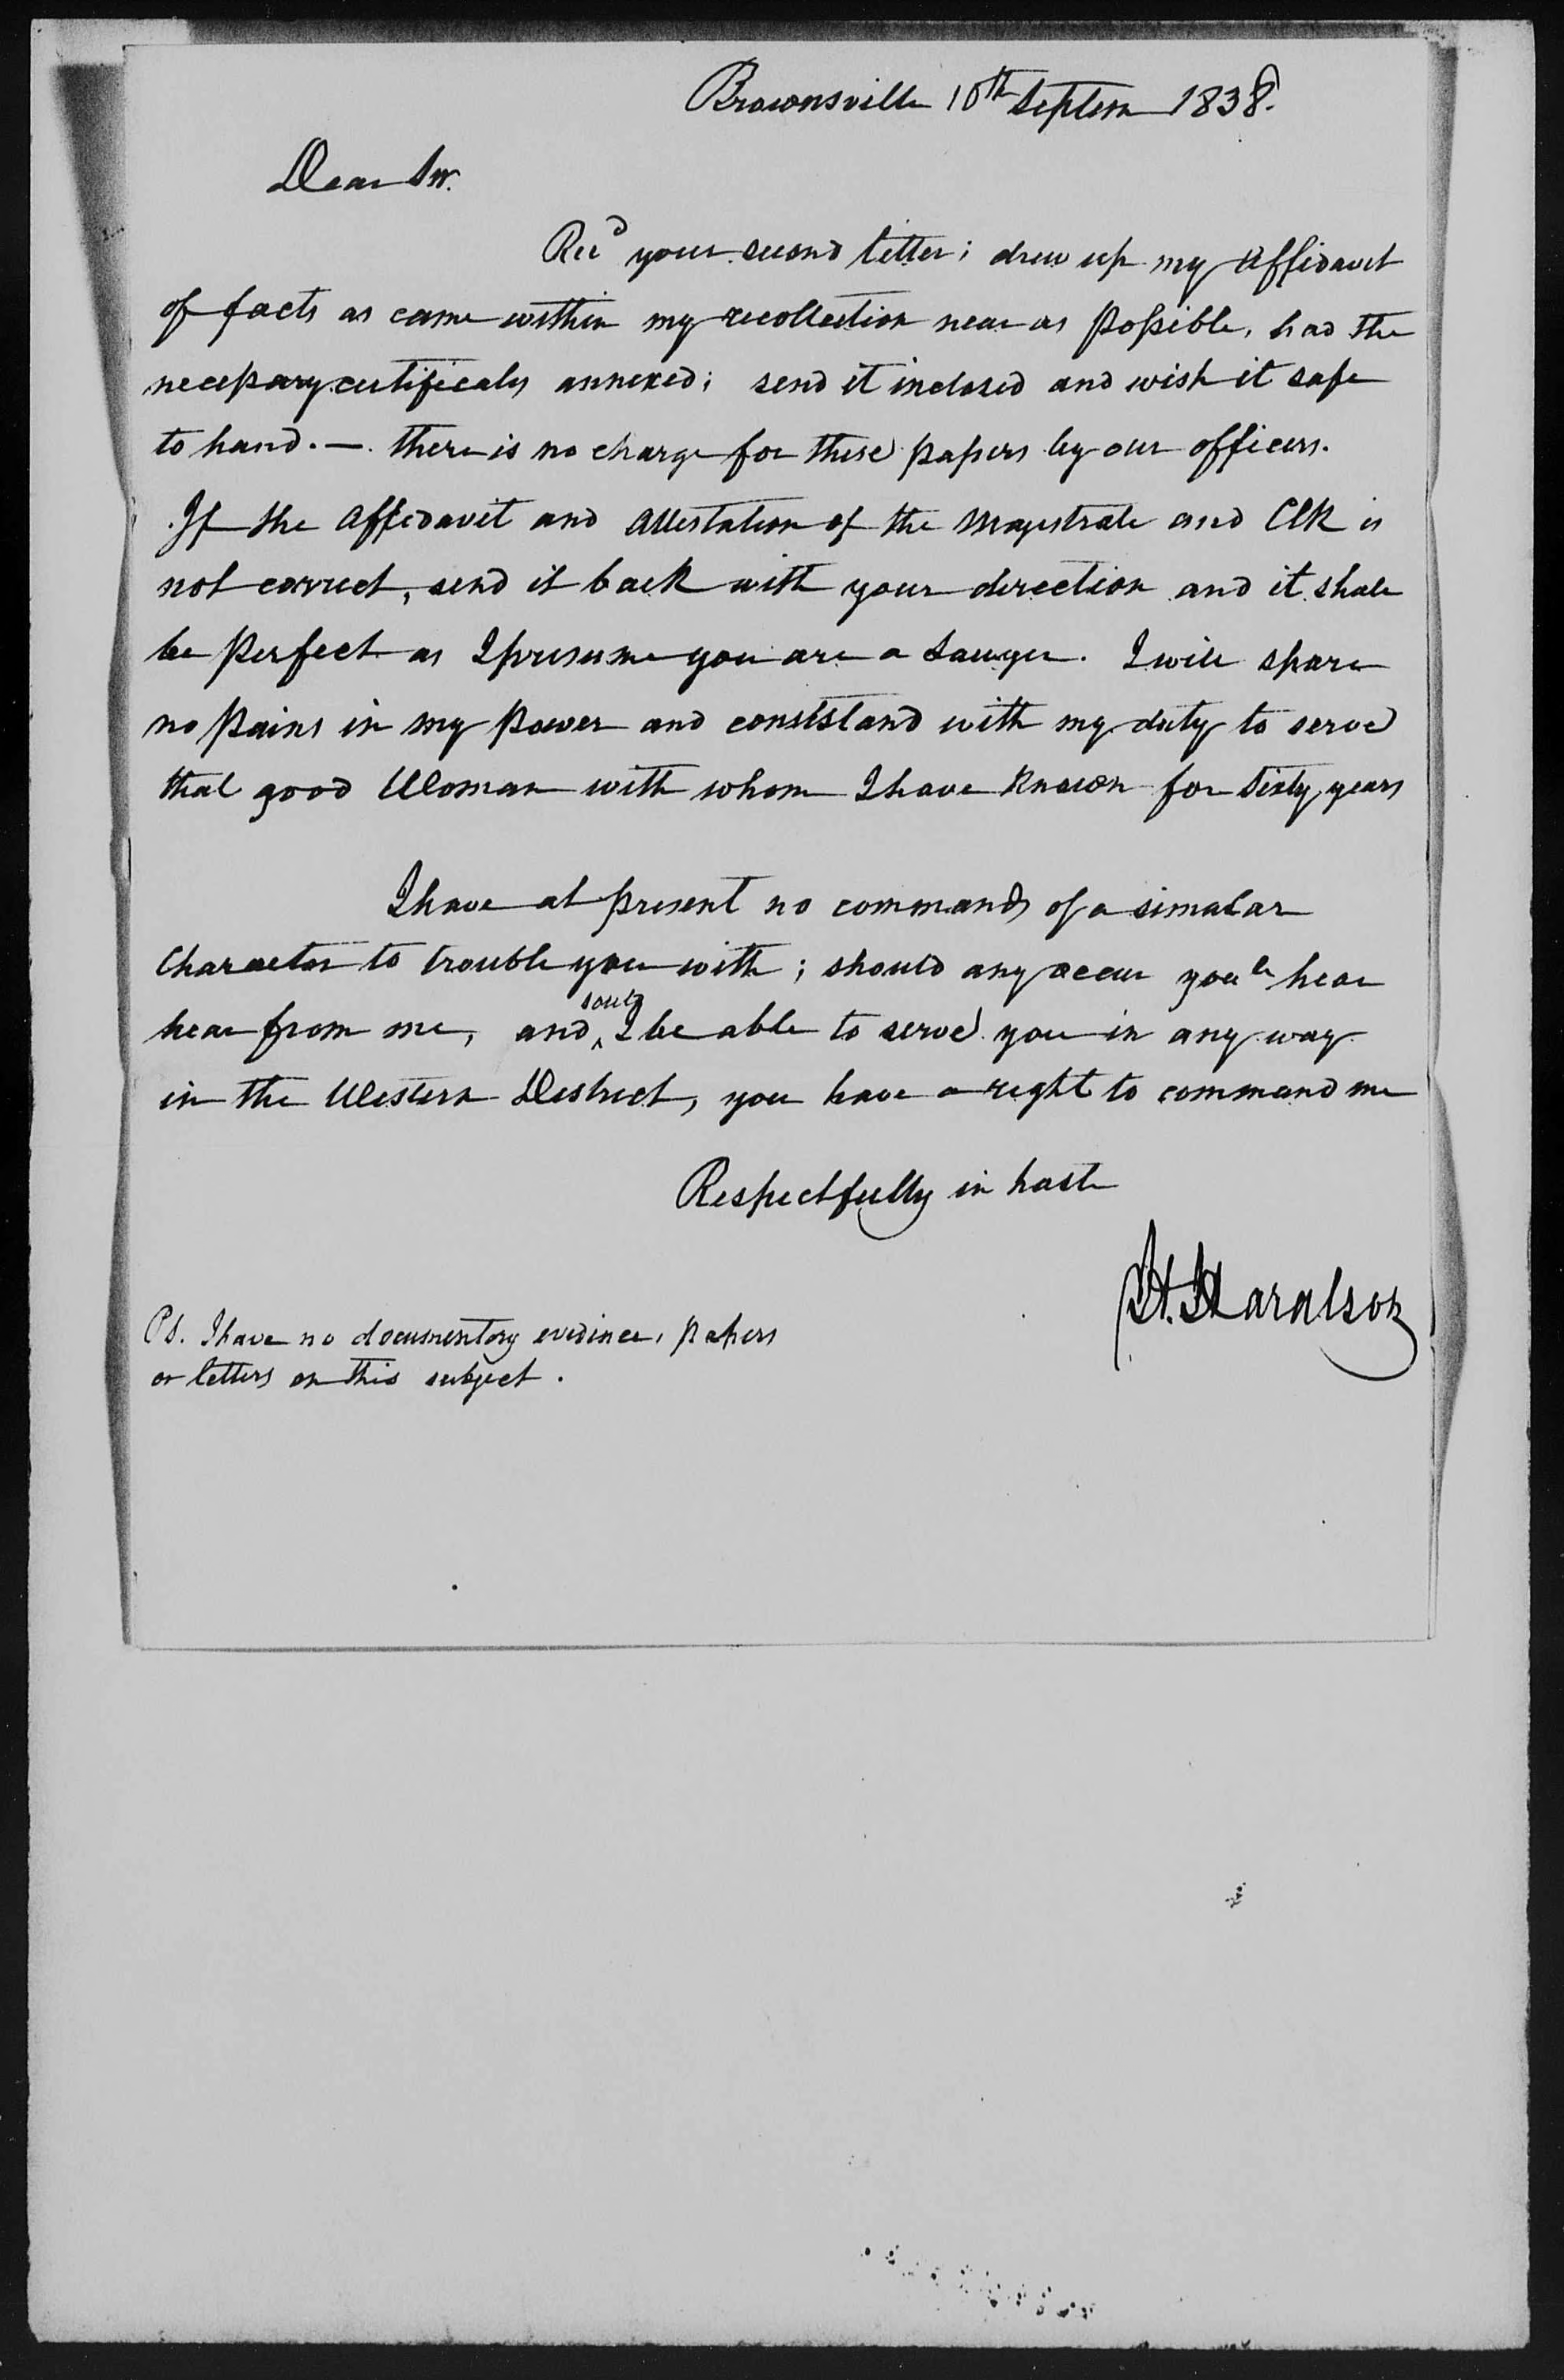 Brownsville 10th Septem 1838.
Dear Sir.
Recd your second letter; drew up my affidavit
of facts as came within my recollection near as possible, had the
necessary certificates annexed; send it inclosed and wish it safe
to hand. — there is no charge for these papers by our officers.
If the affidavit and attestation of the Magistrate and Clk is
not correct, send it back with your direction and it shall
be perfect as I presume you are a Lawyer. I will spare
no pains in my power and consistand with my duty to serve
that good Woman with whom I have known for sixty years
I have at present no commands of a simalar
character to trouble you with; should any occur youll hear
hear from me, and I be able to serve you in any way
in the Western District, you have a right to command me
Respectfully in haste
H. Haralson
Ps. I have no documentory evidince, papers
or letters on this subject.